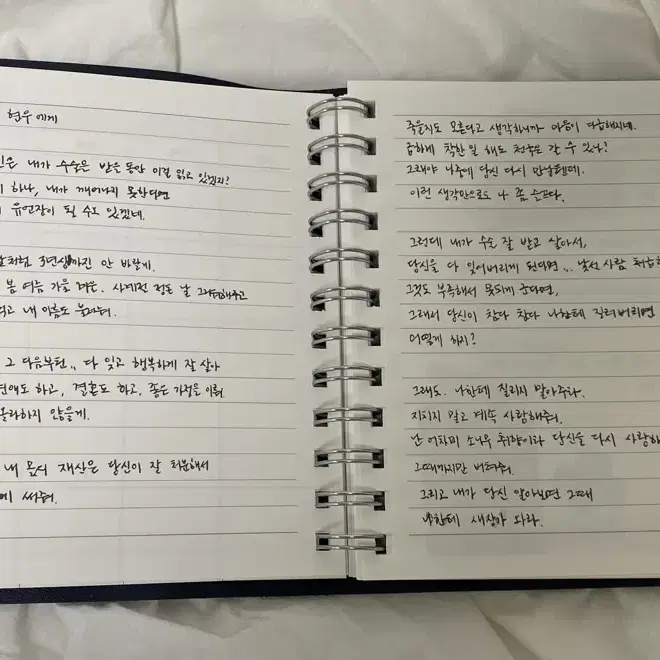 현우에게
내가 수술을 받은 동안 이걸 읽고 있겠지?
하나, 내가 깨어나지 못한다면
유언장이 될 수도 있겠네.
3년상까진 안 바랄게.
봄 여름 가을 겨울. 사계절 정돈 날
내 이름도
그 다음부턴.. 다 잊고 행복하게 잘 살아
하고, 결혼도 하고, 좋은 가정을 이뤄
않을게.
내 몫의 재산은 당신이 잘 처분해서
에 써줘.
죽을지도 모른다고 생각하니까 마음이 다급해지네.
급하게 착한 일 해도 천국은 갈 수 있나?
그래야 나중에 당신 다시 만날텐데.
이런 생각만으로도 나 좀 슬프다.
그런데 내가 수술 잘 받고 살아서,
당신을 다 잊어버리게 된다면.. 낯선 사람
그것도 부족해서 못되게 군다면,
그래서 당신이 참다 참다 나한테 질려버리면
어떻게 하지?
그래도. 나한테 질리지 말아주라.
지치지 말고 계속 사랑해줘.
난 어차피 소나무 취향이라 당신을 다시
그때까지만 버텨줘.
그리고 내가 당신 알아보면 그때
나한테 생색내 와라.